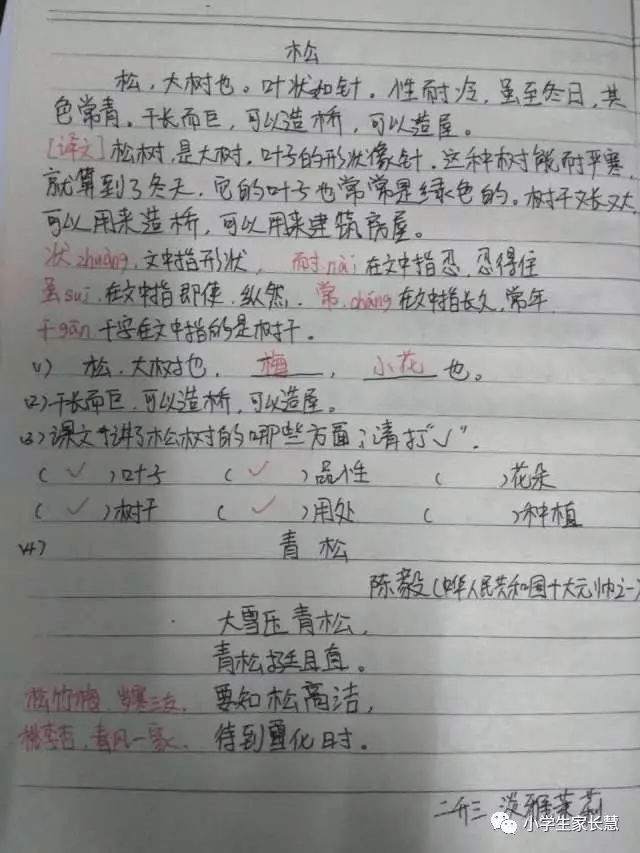 松
松,大树也。叶状如针。性耐冷,虽至冬日,其
色常青。干长而巨,可以造桥,可以造屋。
[译文]松树,是大树,叶子的形状像针,这种树能耐严寒,
就算到了冬天,它的叶子也常常是绿色的。树干又长又大,
可以用来造桥,可以用来建筑房屋。
状zhuàng,文中指形状, 耐nài在文中指忍,忍得住
虽suī,在文中指即使,纵然, 常,cháng在文中指长久,常年
干gān干字在文中指的是树干。
(1) 松,大树也, 梅, 小花也。
(2)干长而巨,可以造桥,可以造屋。
(3)课文中讲了松树的哪些方面?请打“√”.
(√)叶子 (√)品性 ( )花朵
(√)树干 (√)用处 ( )种植
(4) 青松
陈毅(中华人民共和国十大元帅之一)
大雪压青松,
青松挺且直。
松竹梅,岁寒三友, 要知松高洁,
桃李杏,春风一家. 待到雪化时。
二升三
小学生家长慧